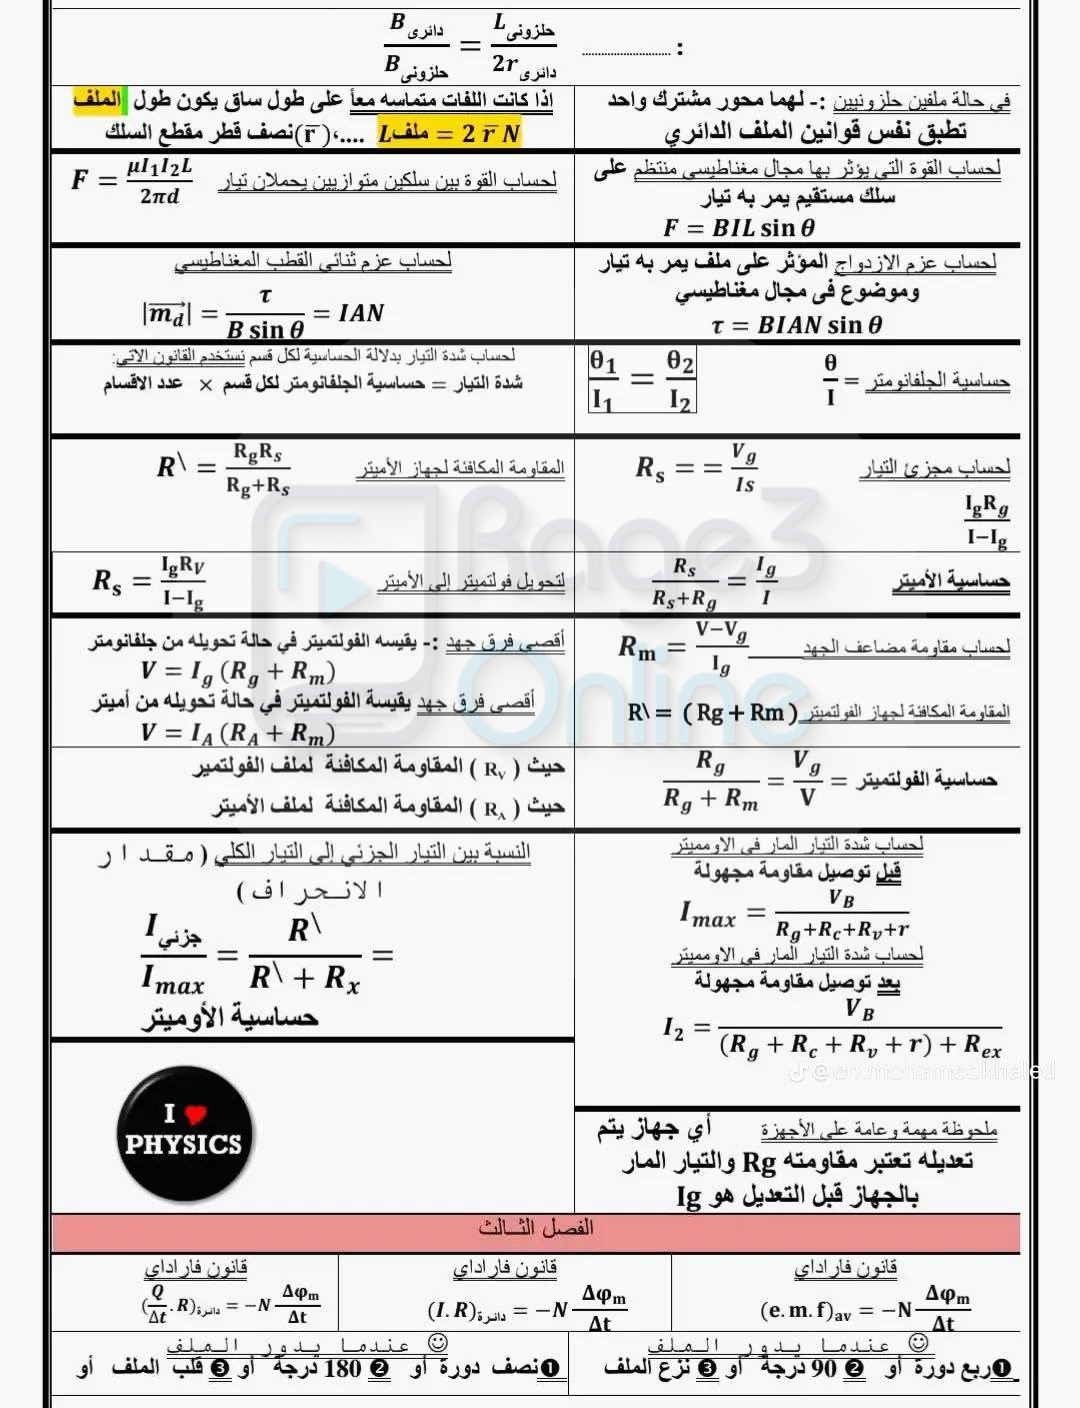 B دائرى / B حلزونى = L حلزونى / 2r دائرى ............................ :
في حالة ملفين حلزونيين :- لهما محور مشترك واحد
تطبق نفس قوانين الملف الدائري
اذا كانت اللفات متماسه معاً على طول ساق يكون طول الملف
L ملف = 2 r̅ N ....،( r̅ )نصف قطر مقطع السلك
لحساب القوة التي يؤثر بها مجال مغناطيسي منتظم على
سلك مستقيم يمر به تيار
F = BIL sin θ
لحساب القوة بين سلكين متوازيين يحملان تيار F = μI₁I₂L / 2πd
لحساب عزم الازدواج المؤثر على ملف يمر به تيار
وموضوع فى مجال مغناطيسي
τ = BIAN sin θ
لحساب عزم ثنائي القطب المغناطيسي
|m_d| = τ / B sin θ = IAN
حساسية الجلفانومتر = θ / I
θ₁ / I₁ = θ₂ / I₂
لحساب شدة التيار بدلالة الحساسية لكل قسم نستخدم القانون الاتي:
شدة التيار = حساسية الجلفانومتر لكل قسم × عدد الاقسام
لحساب مجزئ التيار R_s = = V_g / Is
I_gR_g / I−I_g
المقاومة المكافئة لجهاز الأميتر R\ = R_gR_s / R_g+R_s
حساسية الأميتر R_s / R_s+R_g = I_g / I
لتحويل فولتميتر إلى الأميتر R_s = I_gR_V / I−I_g
لحساب مقاومة مضاعف الجهد R_m = V−V_g / I_g
المقاومة المكافئة لجهاز الفولتميتر R\ = ( Rg + Rm )
أقصى فرق جهد :- يقيسه الفولتميتر في حالة تحويله من جلفانومتر
V = I_g (R_g + R_m)
أقصى فرق جهد يقيسة الفولتميتر في حالة تحويله من أميتر
V = I_A (R_A + R_m)
حساسية الفولتميتر = V_g / V = R_g / R_g + R_m
حيث ( R_V ) المقاومة المكافئة لملف الفولتمير
حيث ( R_A ) المقاومة المكافئة لملف الأميتر
لحساب شدة التيار المار في الاومميتر
قبل توصيل مقاومة مجهولة
I_max = V_B / R_g+R_c+R_v+r
لحساب شدة التيار المار في الاومميتر
بعد توصيل مقاومة مجهولة
I₂ = V_B / (R_g + R_c + R_v + r) + R_ex
النسبة بين التيار الجزئي إلى التيار الكلي ( مقدار
الانحراف )
I جزئي / I_max = R\ / R\ + R_x =
حساسية الأوميتر
Bage3
Online
@en.mohamedkhaled
I ♥
PHYSICS
ملحوظة مهمة وعامة على الأجهزة أي جهاز يتم
تعديله تعتبر مقاومته Rg والتيار المار
بالجهاز قبل التعديل هو Ig
الفصل الثالث
قانون فاراداي
(e.m.f)_av = −N Δφ_m / Δt
قانون فاراداي
(I.R)دائرة = −N Δφ_m / Δt
قانون فاراداي
(Q / Δt .R)دائرة = −N Δφ_m / Δt
☺ عندما يدور الملف ☺
❶ربع دورة أو ❷ 90 درجة أو ❸ نزع الملف
عندما يدور الملف ☺
❶نصف دورة أو ❷ 180 درجة أو ❸ قلب الملف أو